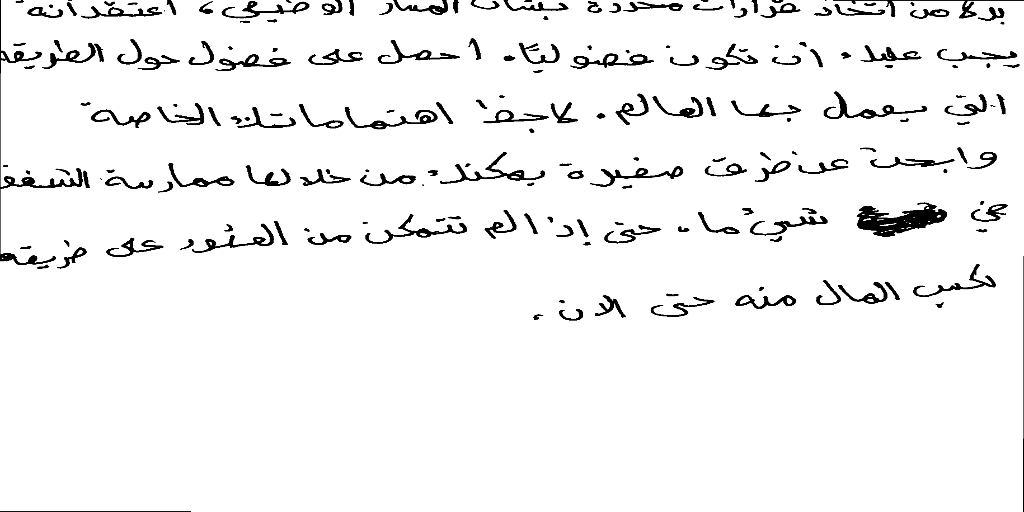 بدلا من اتخاذ قرارات محددة بشأن المسار الوظيفي، اعتقد انه
يجب عليك أن تكون فضوليًا. احصل على فضول حول الطريقة
التي يعمل بها العالم. لاحظ اهتماماتك الخاصة
وابحث عن طرق صغيرة يمكنك من خلالها ممارسة الشغف
في شيء ما، حتى إذا لم تتمكن من العثور على طريقه
لكسب المال منه حتى الان.